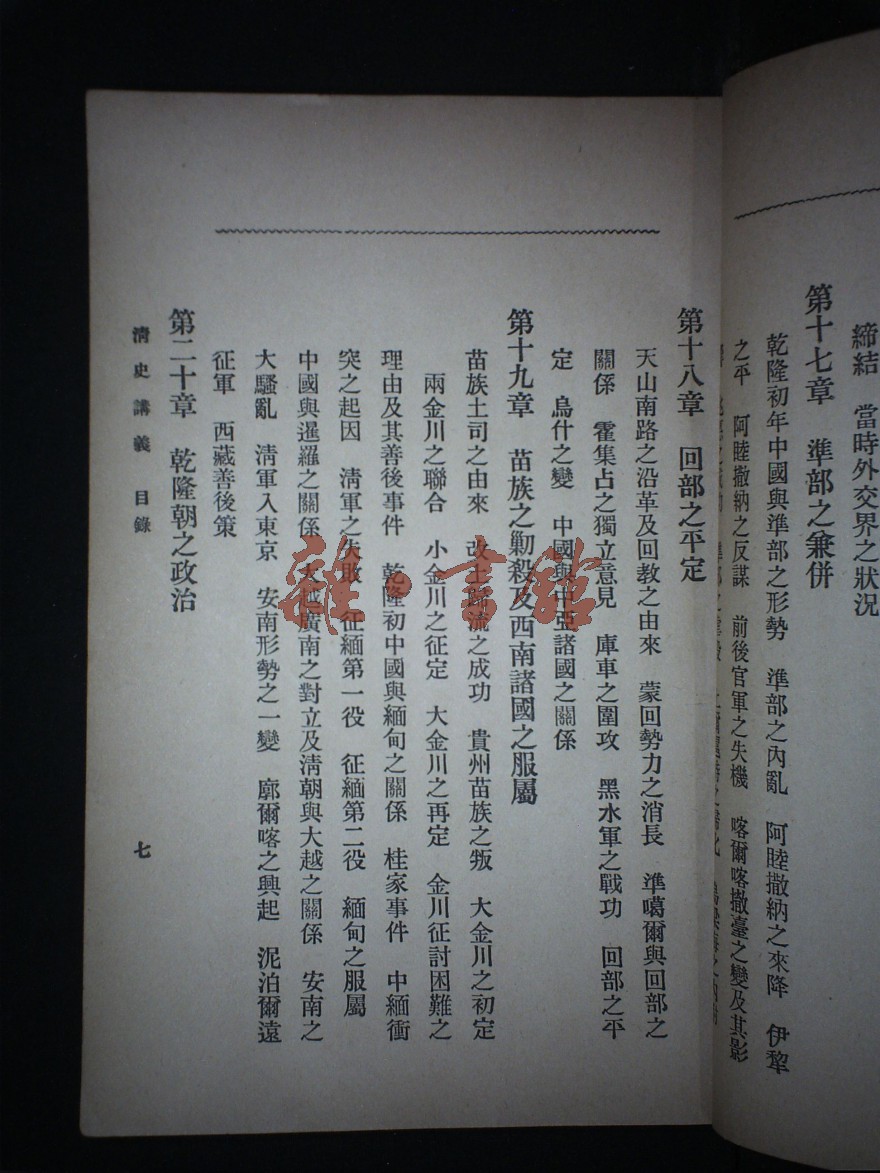 締結　當時外交界之狀況
第十七章　準部之兼併
乾隆初年中國與準部之形勢　準部之內亂　阿睦撒納之來降　伊犂
之平　阿睦撒納之反謀　前後官軍之失機　喀爾喀撤臺之變及其影
第十八章　回部之平定
天山南路之沿革及回教之由來　蒙回勢力之消長　準噶爾與回部之
關係　霍集占之獨立意見　庫車之圍攻　黑水軍之戰功　回部之平
定　烏什之變　中國與中亞諸國之關係
第十九章　苗族之勦殺及西南諸國之服屬
苗族土司之由來　改土歸流之成功　貴州苗族之叛　大金川之初定
兩金川之聯合　小金川之征定　大金川之再定　金川征討困難之
理由及其善後事件　乾隆初中國與緬甸之關係　桂家事件　中緬衝
突之起因　清軍之失敗　征緬第一役　征緬第二役　緬甸之服屬
中國與暹羅之關係　大越廣南之對立及清朝與大越之關係　安南之
大騷亂　清軍入東京　安南形勢之一變　廓爾喀之興起　泥泊爾遠
征軍　西藏善後策
第二十章　乾隆朝之政治
清史講義　目錄
七
雜·書館